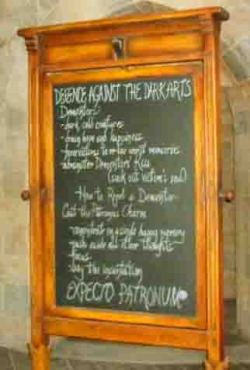 DEFENCE AGAINST THE DARK ARTS
Dementors
- dark, cold creatures
- drain hope and happiness
- worst memories
- Dementors Kiss
(suck out victim's soul)
How to Repel a Dementor
Cast the Patronus Charm
- concentrate on a single happy memory
- push aside all other thoughts
- focus
- say the incantation
EXPECTO PATRONUM